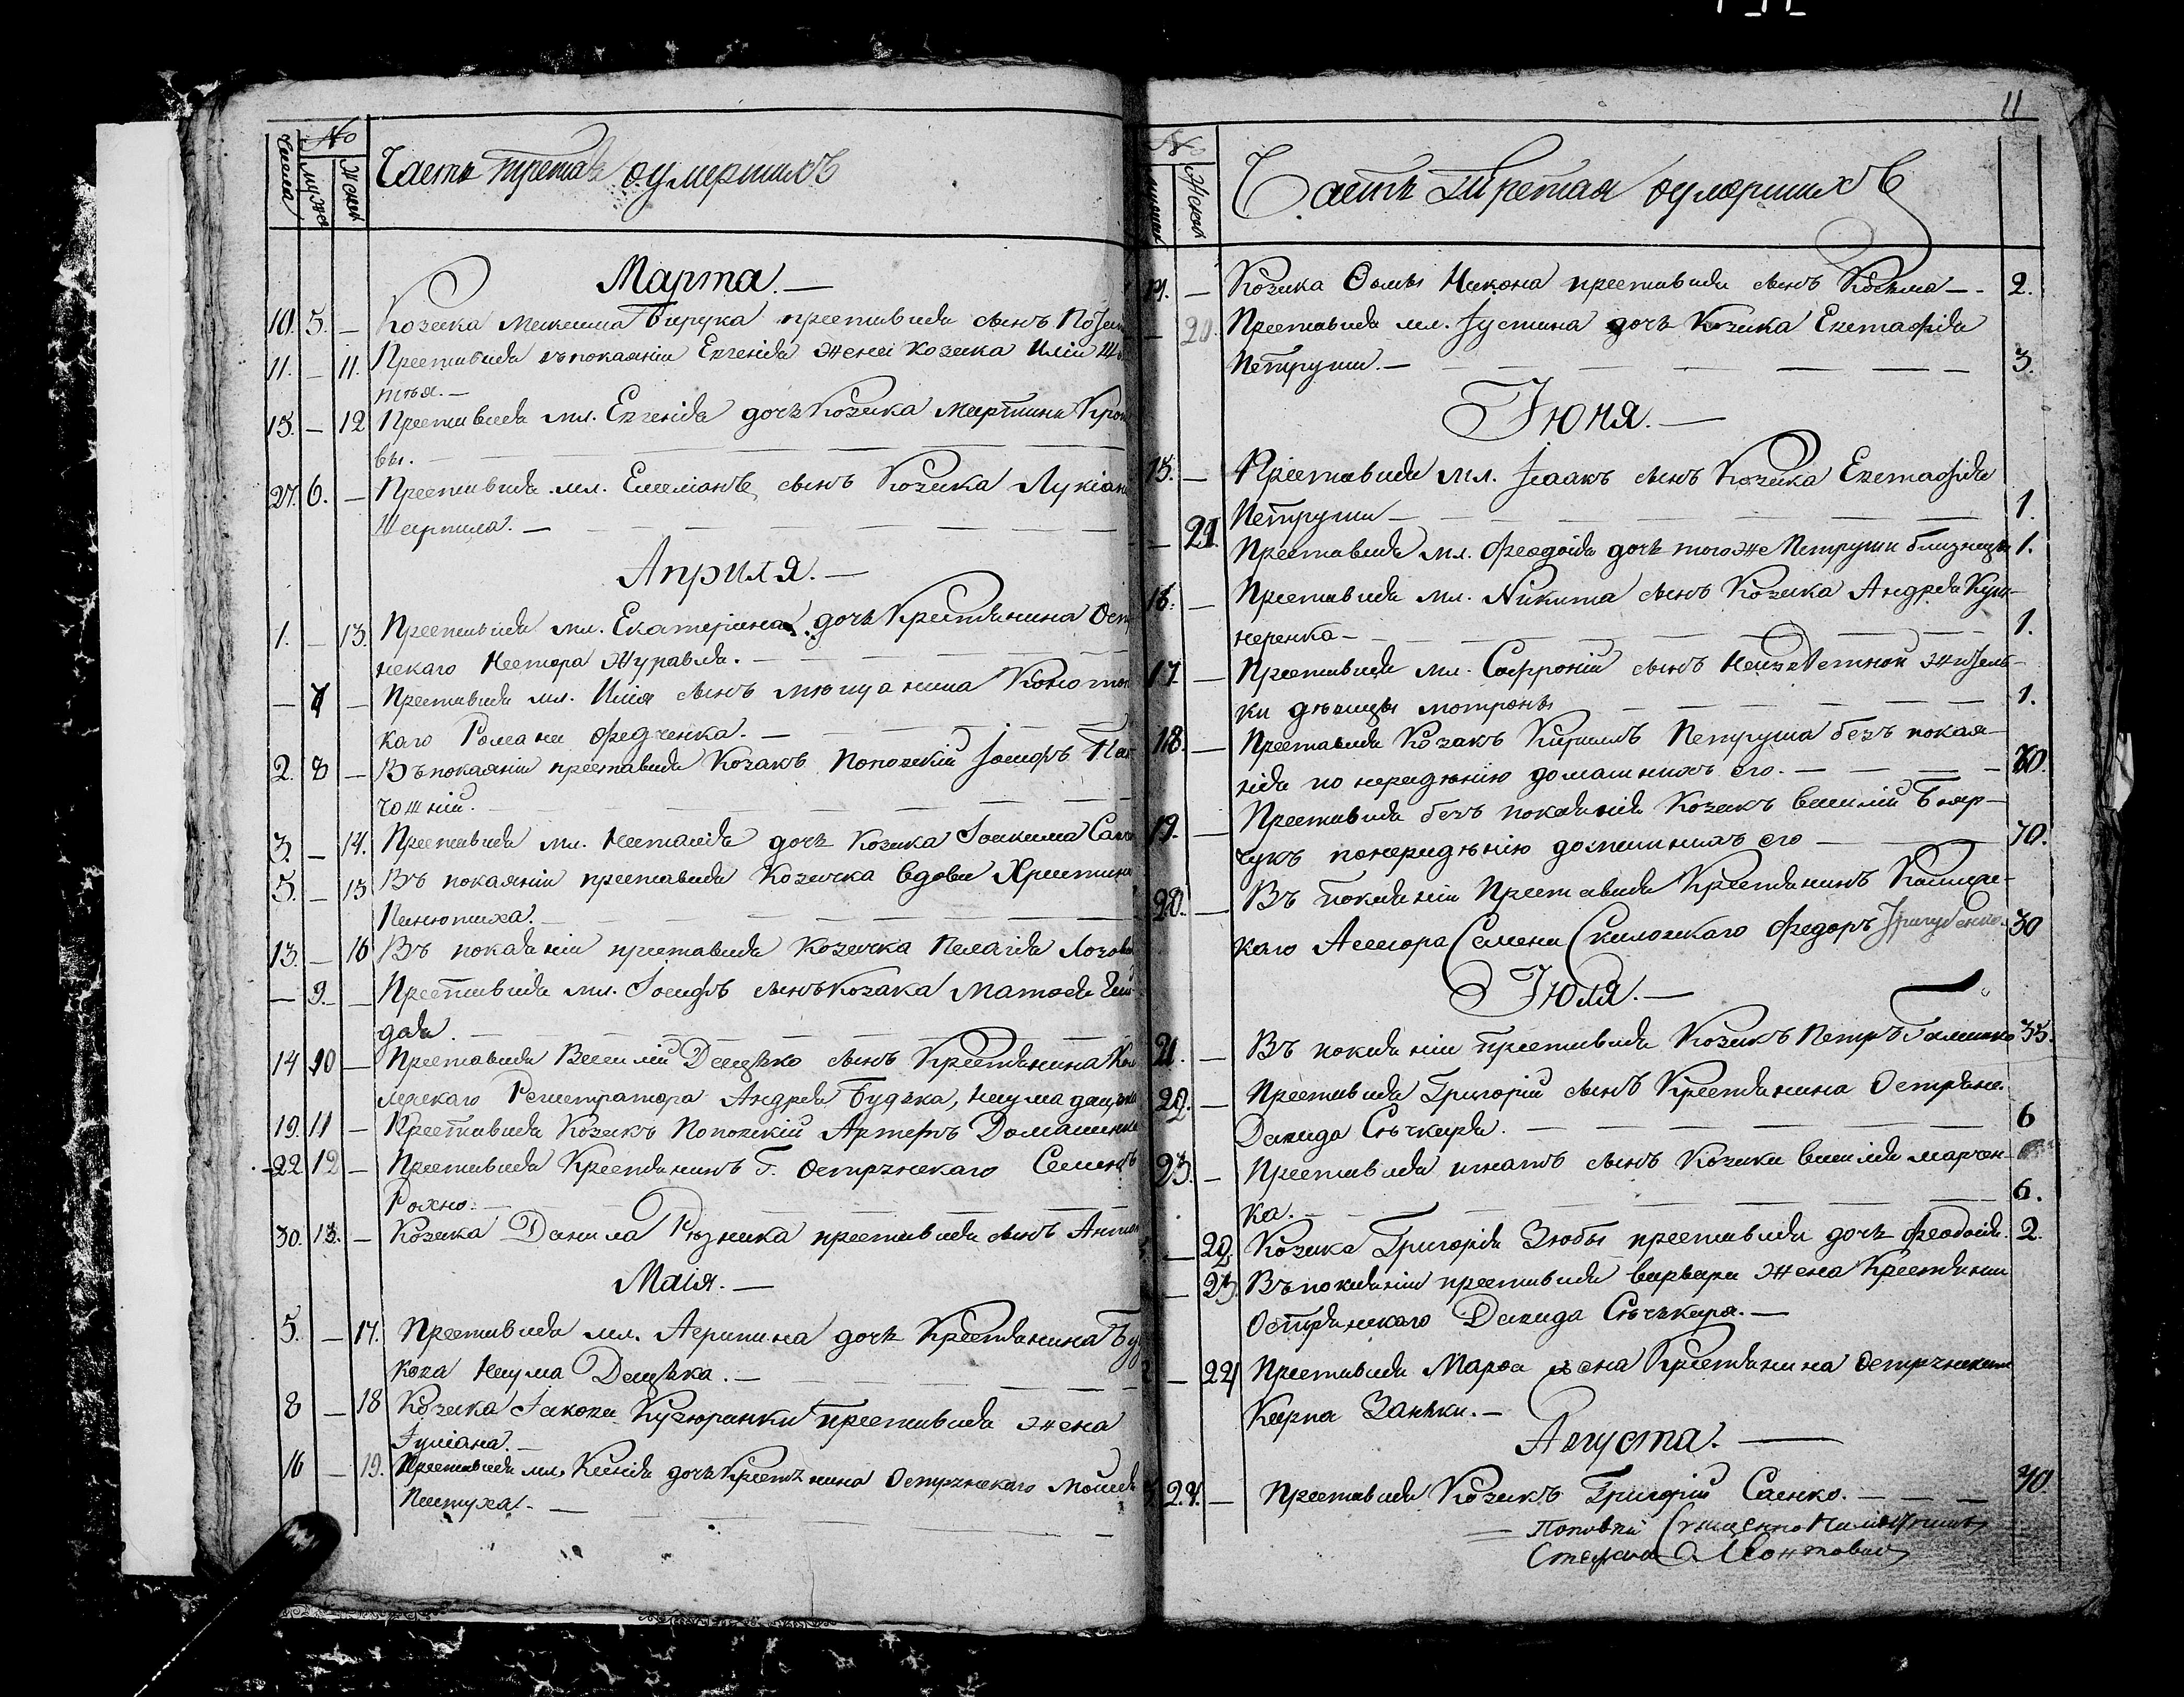 Числа № мужеска Женска
Часть третая оумершихъ
Марта. —
10. 5. — Козака Максима Бирука преставися сынъ
11. — 11. Преставися въ покаяніи Евгенія жена козака Иліи
тья. —
15. — 12 Преставися мл. Евгенія дочь Козака Мартина
вы. —
27. 6. — Преставися мл. Емеліанъ сынъ Козака Лукіана
Шарпила. —
Априля. —
1. — 13. Преставися мл. Екатерина дочь Крестянина
нскаго Нестора Журавля. —
— 7 — Преставися мл. Илія сынъ мющанина Конотоп
каго Романа Федченка. —
2. 8 — Въ покаяніи преставися Козакъ Поповскій Іосифъ
чошній.
3. — 14. Преставися мл. Наталія дочь Козака Іоакима
5. — 15 Въ покаяніи преставися Козачка вдова Христина
Панютиха. —
13. — 16 Въ покаяніи преставися Козачка Пелагія
— 9. — Преставися мл. Іосифъ сынъ Козака Матфея
дая. —
14 10 — Преставися Василій Дацько сынъ Крестянина
лежскаго Регистратора Андрея Будяка, Наума
19. 11 — Преставися Козакъ Поповскій Артемъ
22 12 — Преставися Крестянинъ Г. Острянскаго Семенъ
Рохно. —
30. 13. — Козака Данила Рѣзника преставися сынъ
Маія. —
5. — 17. Преставися мл. Агрипина дочь Крестянина
кова Наума Дацька. —
8 — 18 Козака Іакова преставися жена
Іуліана. —
16 — 19. Преставися мл. Ксенія дочь Крестянина Острянскаго Моисея
Пастуха. —
11
№ Женска
Часть третая оумершихъ
14. — Козака Ѳомы Никона преставися сынъ Косьма — 2.
— 20. Преставися мл. Іустина дочь Козака Евстафія
Петруши. — 3.
Іюня. —
15. — Преставися мл. Ісаакъ сынъ Козака Евстафія
Петруши — 1.
— 21. Преставися мл. Феодосія дочь тогоже Петруши близнецы 1.
16. — Преставися мл. Никита сынъ Козака Андрея Куш-
неренка — 1.
17 — Преставися мл. Софроній сынъ Неизвѣстной жытель-
ки дѣвицы мотроны — 1.
18. — Преставися Козакъ Кирилъ Петруша безъ покая-
нія по нерадѣнію домашнихъ его. — 70.
19. — Преставися безъ покаянія Козакъ василій Бояр-
чукъ понерадѣнію домашнихъ его — 70.
20. — Въ покаяніи Преставися Крестянинъ
каго Асессора Семена Федоръ 30
Іюля. —
21. — Въ покаяніи преставися Козакъ Петръ 35.
22. — Преставися Григорій сынъ Крестянина Острянс.
Давида Сѣчкаря. — 6
23. — Преставися игнатъ сынъ Козака василія марчен-
ка. — 6.
— 22 Козака Григорія Зюбы преставися дочь Феодосія. 2.
— 23. Въ покаяніи преставися варвара жена Крестянина
Острянскаго Давида Сѣчькаря. —
— 24 Преставися Марѳа жена Крестянина Острянскаго
Карпа Заньки. —
Августа. —
24. — Преставися Козакъ Григорій Саенко. — 70
Стефанъ Леонтовичъ